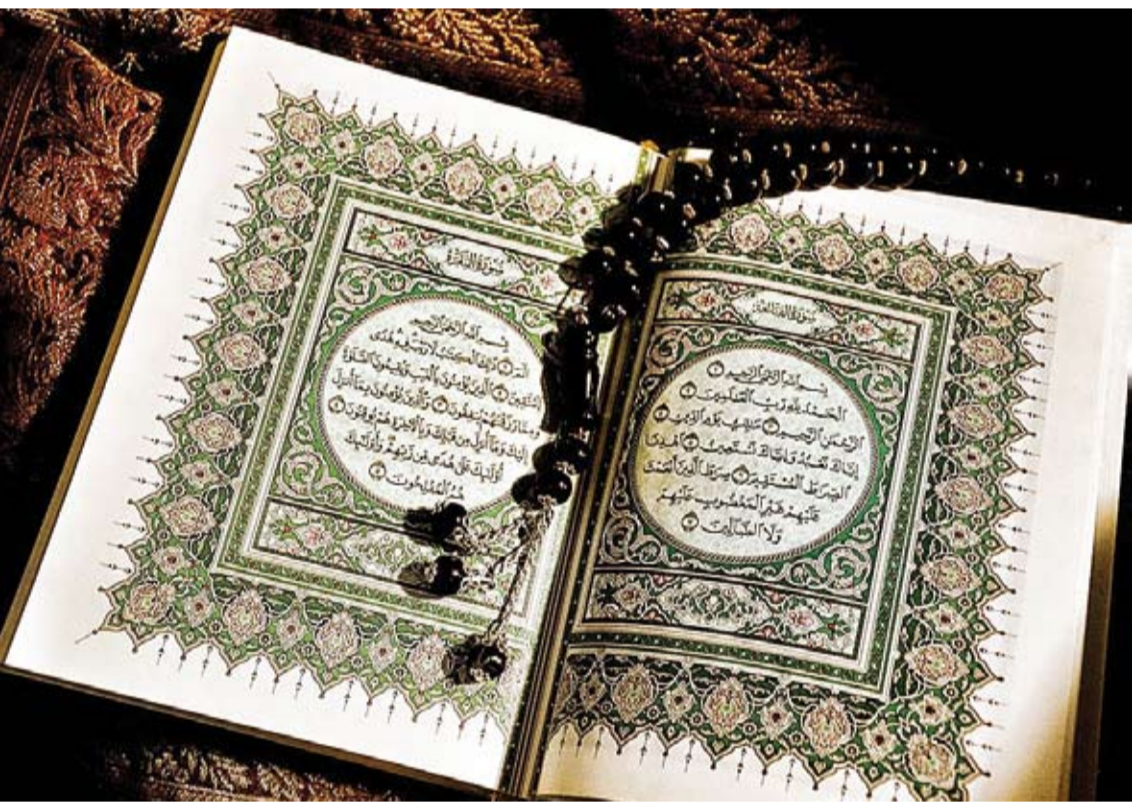 سُورَةُ الفَاتِحَةِ
بِسْمِ اللَّهِ الرَّحْمَٰنِ الرَّحِيمِ ١
الْحَمْدُ لِلَّهِ رَبِّ الْعَالَمِينَ ٢
الرَّحْمَٰنِ الرَّحِيمِ ٣ مَالِكِ يَوْمِ الدِّينِ ٤
إِيَّاكَ نَعْبُدُ وَإِيَّاكَ نَسْتَعِينُ ٥ اهْدِنَا
الصِّرَاطَ الْمُسْتَقِيمَ ٦ صِرَاطَ الَّذِينَ أَنْعَمْتَ
عَلَيْهِمْ غَيْرِ الْمَغْضُوبِ عَلَيْهِمْ
وَلَا الضَّالِّينَ ٧
سُورَةُ البَقَرَةِ
بِسْمِ اللَّهِ الرَّحْمَٰنِ الرَّحِيمِ
الم ١ ذَٰلِكَ الْكِتَابُ لَا رَيْبَ فِيهِ هُدًى
لِلْمُتَّقِينَ ٢ الَّذِينَ يُؤْمِنُونَ بِالْغَيْبِ وَيُقِيمُونَ الصَّلَاةَ
وَمِمَّا رَزَقْنَاهُمْ يُنْفِقُونَ ٣ وَالَّذِينَ يُؤْمِنُونَ بِمَا أُنْزِلَ
إِلَيْكَ وَمَا أُنْزِلَ مِنْ قَبْلِكَ وَبِالْآخِرَةِ هُمْ يُوقِنُونَ ٤
أُولَٰئِكَ عَلَىٰ هُدًى مِنْ رَبِّهِمْ وَأُولَٰئِكَ
هُمُ الْمُفْلِحُونَ ٥